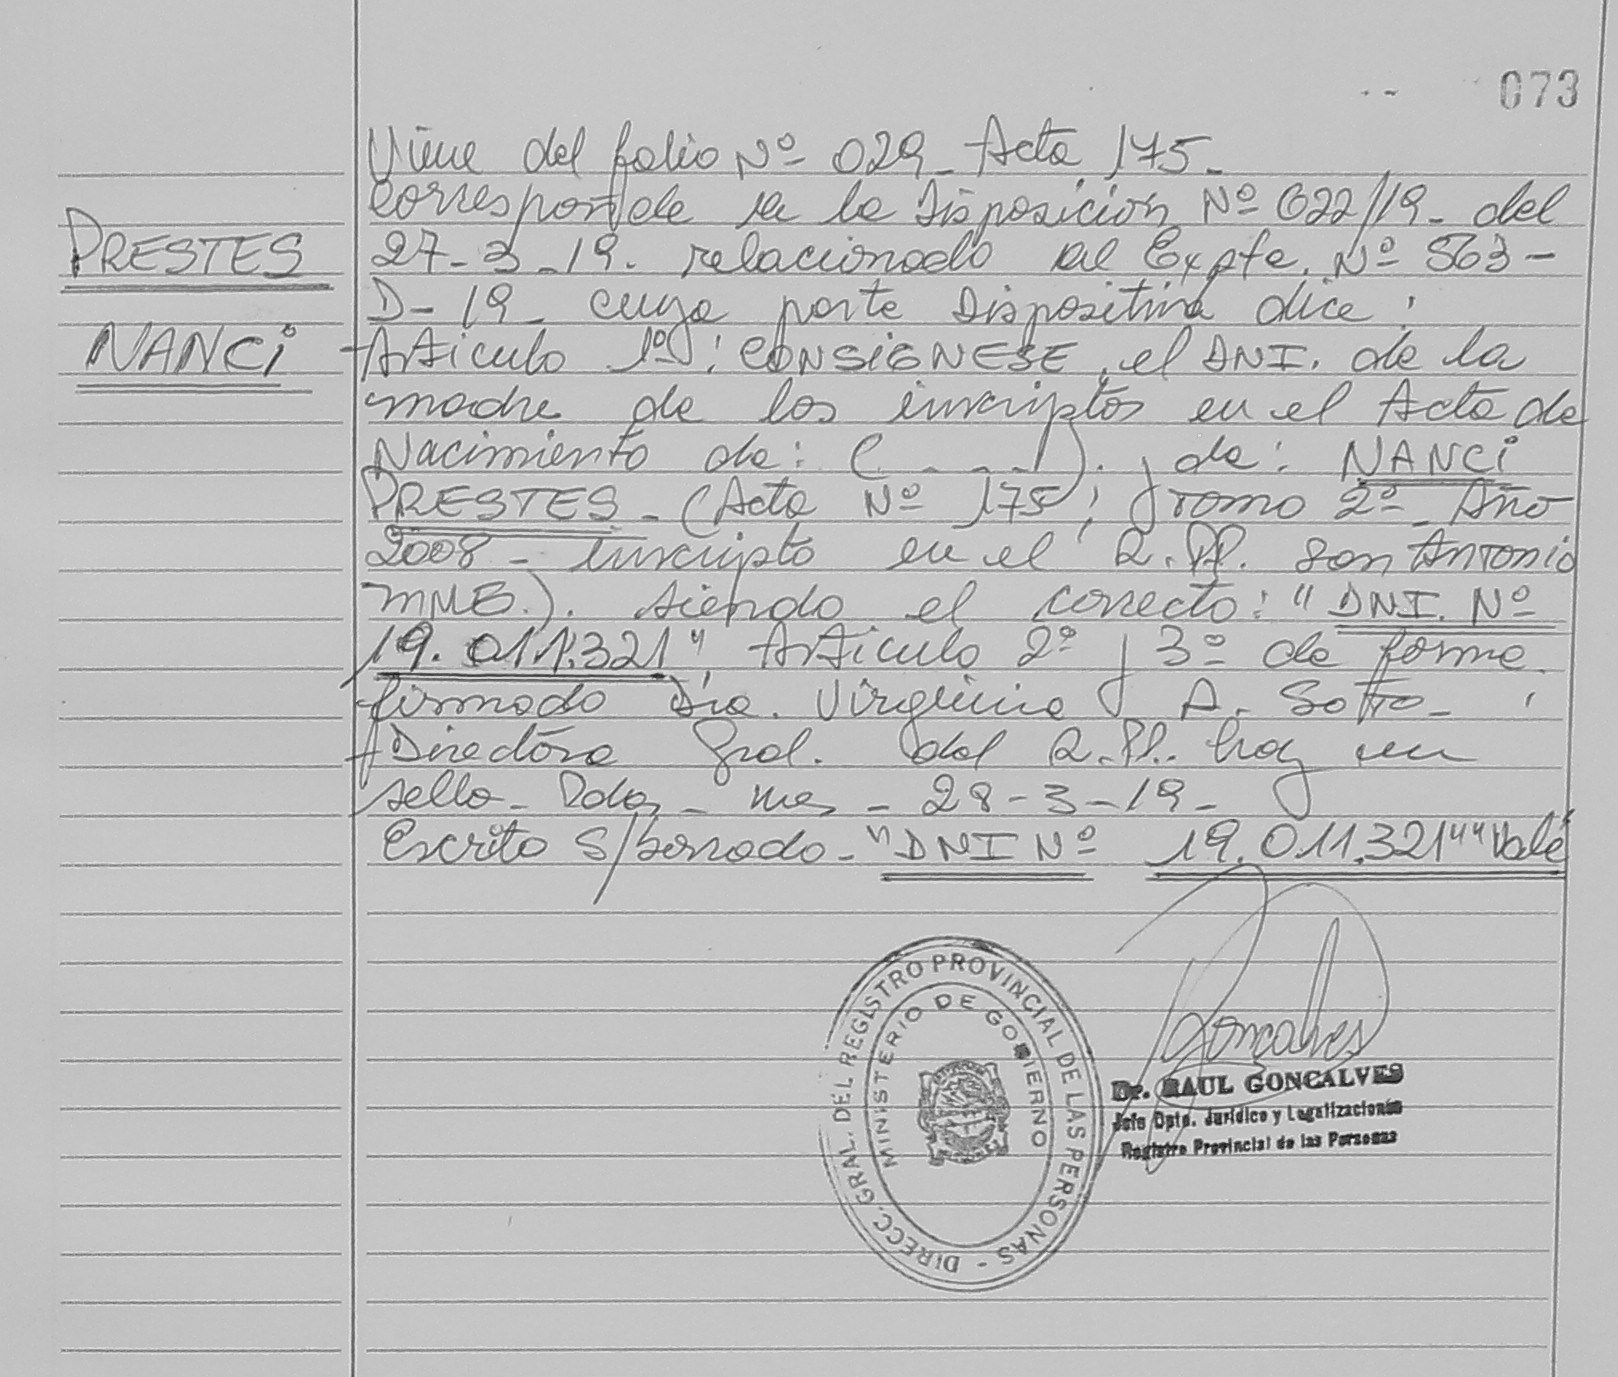 073
Viene del folio Nº 029 - Acta 175 -
Corresponde a la Disposición Nº 022/19 - del
PRESTES
27-3-19. relacionado al Expte. Nº 563 -
D-19 - cuya parte Dispositiva dice:
NANCi
Articulo 1º: CONSiGNESE, el DNI. de la
madre de los inscriptos en el Acta de
Nacimiento de: (----). y de: NANCi
PRESTES - (Acta Nº 175; Tomo 2º - Año
2008 - inscripto en el R.PP. San Antonio
MNES.). siendo el correcto: "DNI. Nº
19.011.321", Articulo 2º y 3º de forma
firmado Dra. Virginia A. Sotto -
Directora Gral. del R.PP. hay un
sello - Pdas - Mes - 28-3-19 -
Escrito S/borrado - "DNI Nº 19.011.321"" Vale
DIRECC. GRAL. DEL REGISTRO PROVINCIAL DE LAS PERSONAS -
MINISTERIO DE GOBIERNO
Goncalves
Dr. RAUL GONCALVES
Jefe Dpto. Jurídico y Legalizaciones
Registro Provincial de las Personas